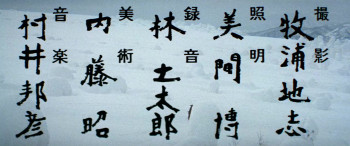 撮影 牧浦地志
照明 美間博
録音 林土太郎
美術 内藤昭
音楽 村井邦彦